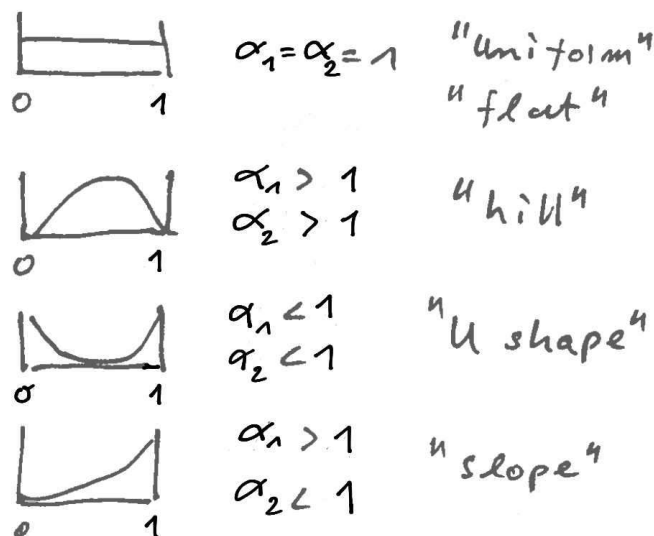 α₁ = α₂ = 1 "uniform"
0 1 "flat"
α₁ > 1
α₂ > 1 "hill"
0 1
α₁ < 1
α₂ < 1 "U shape"
0 1
α₁ > 1
α₂ < 1 "slope"
0 1